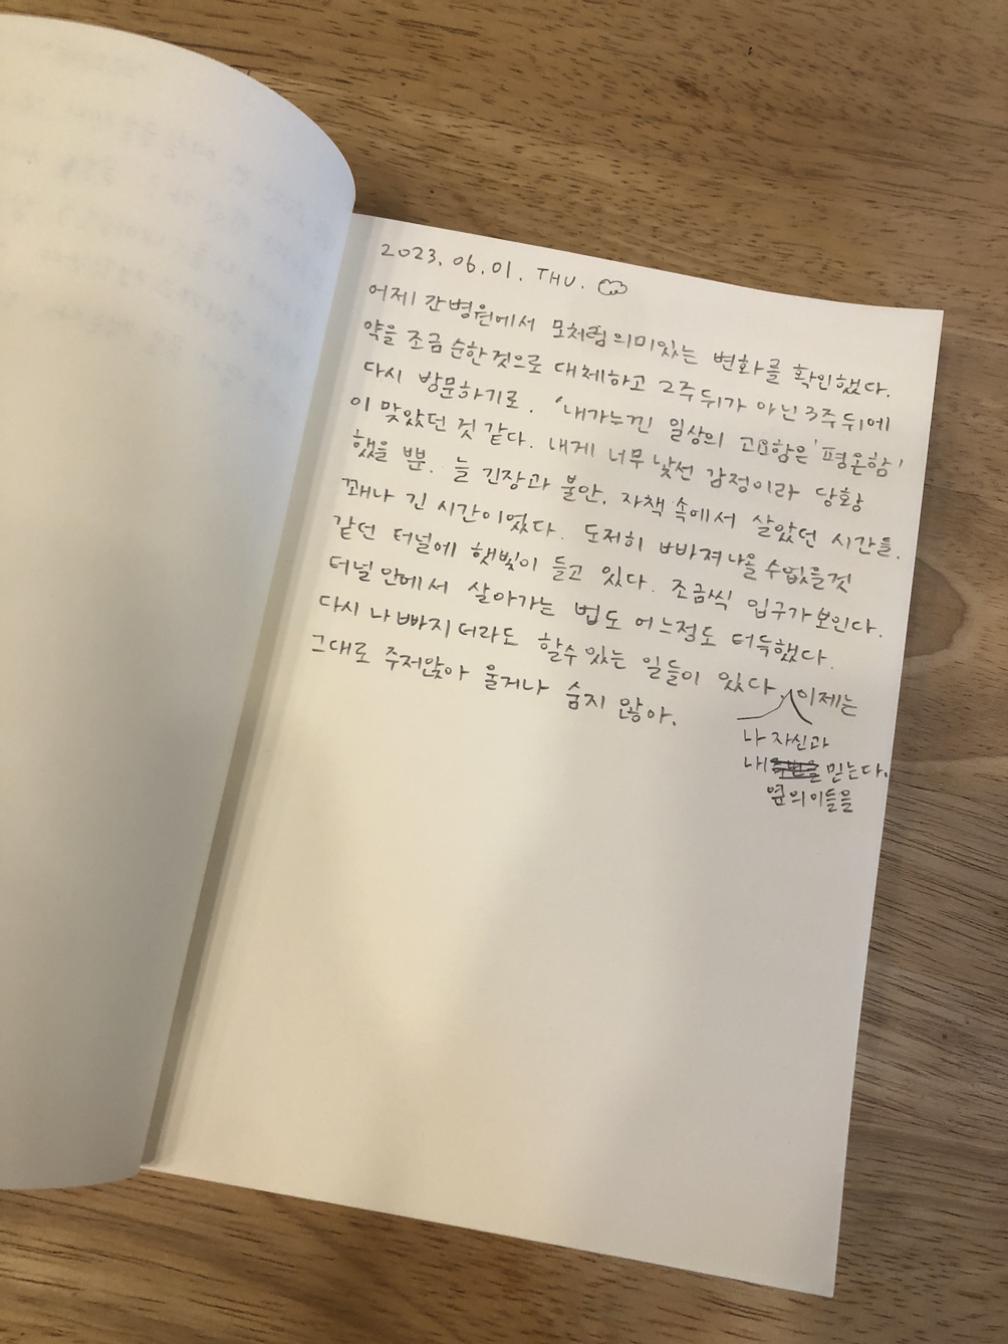 2023. 06. 01. THU.
어제 간 병원에서 모처럼 의미있는 변화를 확인했다.
약을 조금 순한 것으로 대체하고 2주 뒤가 아닌 3주 뒤에
다시 방문하기로. '내가 느낀 일상의 고요함은 '평온함'
이 맞았던 것 같다. 내게 너무 낯선 감정이라 당황
했을 뿐. 늘 긴장과 불안, 자책 속에서 살았던 시간들.
꽤나 긴 시간이었다. 도저히 빠져나올 수 없을 것
같던 터널에 햇빛이 들고 있다. 조금씩 입구가 보인다.
터널 안에서 살아가는 법도 어느정도 터득했다.
다시 나빠지더라도 할 수 있는 일들이 있다. 이제는
그대로 주저앉아 울거나 숨지 않아.
나 자신과
내 믿는다.
옆의 이들을